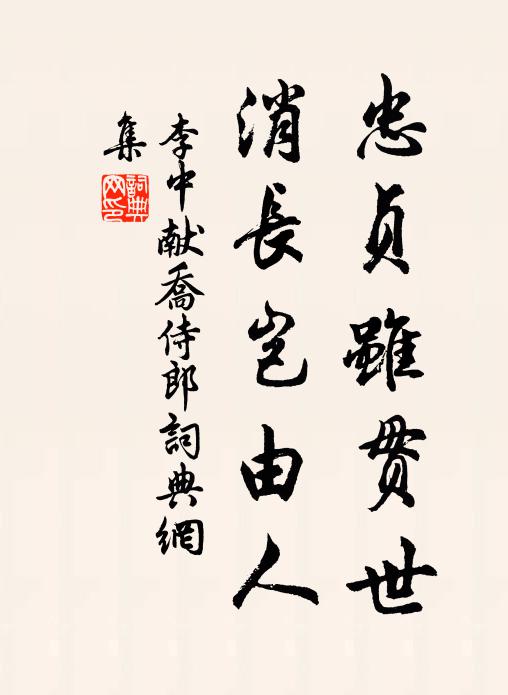 忠貞雖貫世
消長豈由人
李中献喬侍郎詞典網
集
詞典
网印